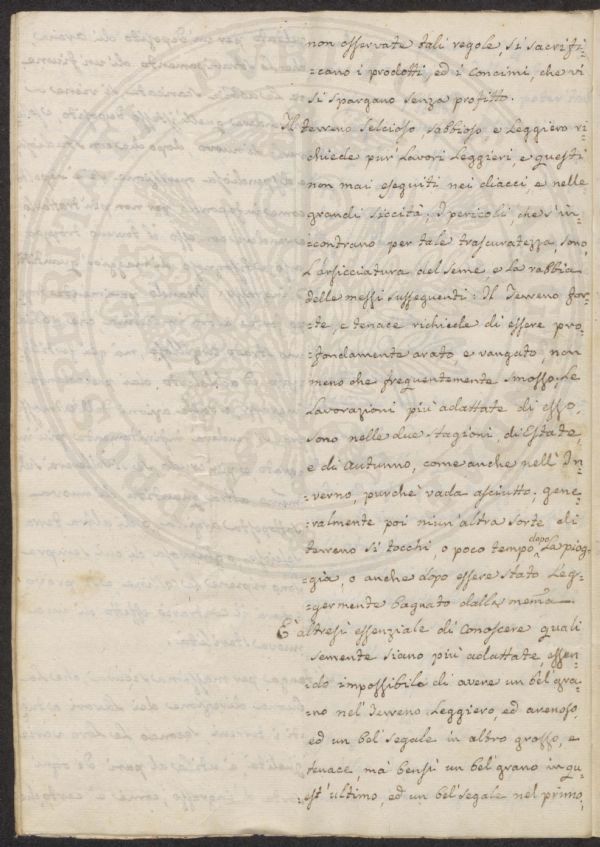 non osservate tali regole, si sacrifi=
=cano i prodotti, ed i Concimi, che vi
si spargano senza profitto.
Il terreno selcioso sabbioso e leggiero ri=
chiede pur lavori leggieri, e questi
non mai eseguiti nei diacci, e nelle
grandi siccità; I pericoli, che s'in=
=contrano per tale trascuratezza, sono
L'arsicciatura del seme, e la rabbia
delle messi susseguenti: Il Terreno for=
=te, e tenace richiede di essere pro=
=fondamente arato e vangato, non
meno che frequentemente smosso; Le
Lavorazioni più adattate di esso,
sono nelle due stagioni, di Estate,
e di Autunno, come anche nell' In=
=verno, purchè vada asciutto: gene=
=ralmente poi niun' altra sorte di
terreno si tocchi, o poco tempo dopo la piog=
=gia, o anche dopo essere stato leg=
=germente bagnato dalla medma.
È altresì essenziale di conoscere quali
semente siano più adattate, essen=
=do impossibile di avere un bel gra=
=no nel Terreno leggiero, ed arenoso,
ed un bel segale in altro grosso, e
tenace, mà bensì un bel grano in qu=
=est' ultimo, ed un bel segale nel primo,